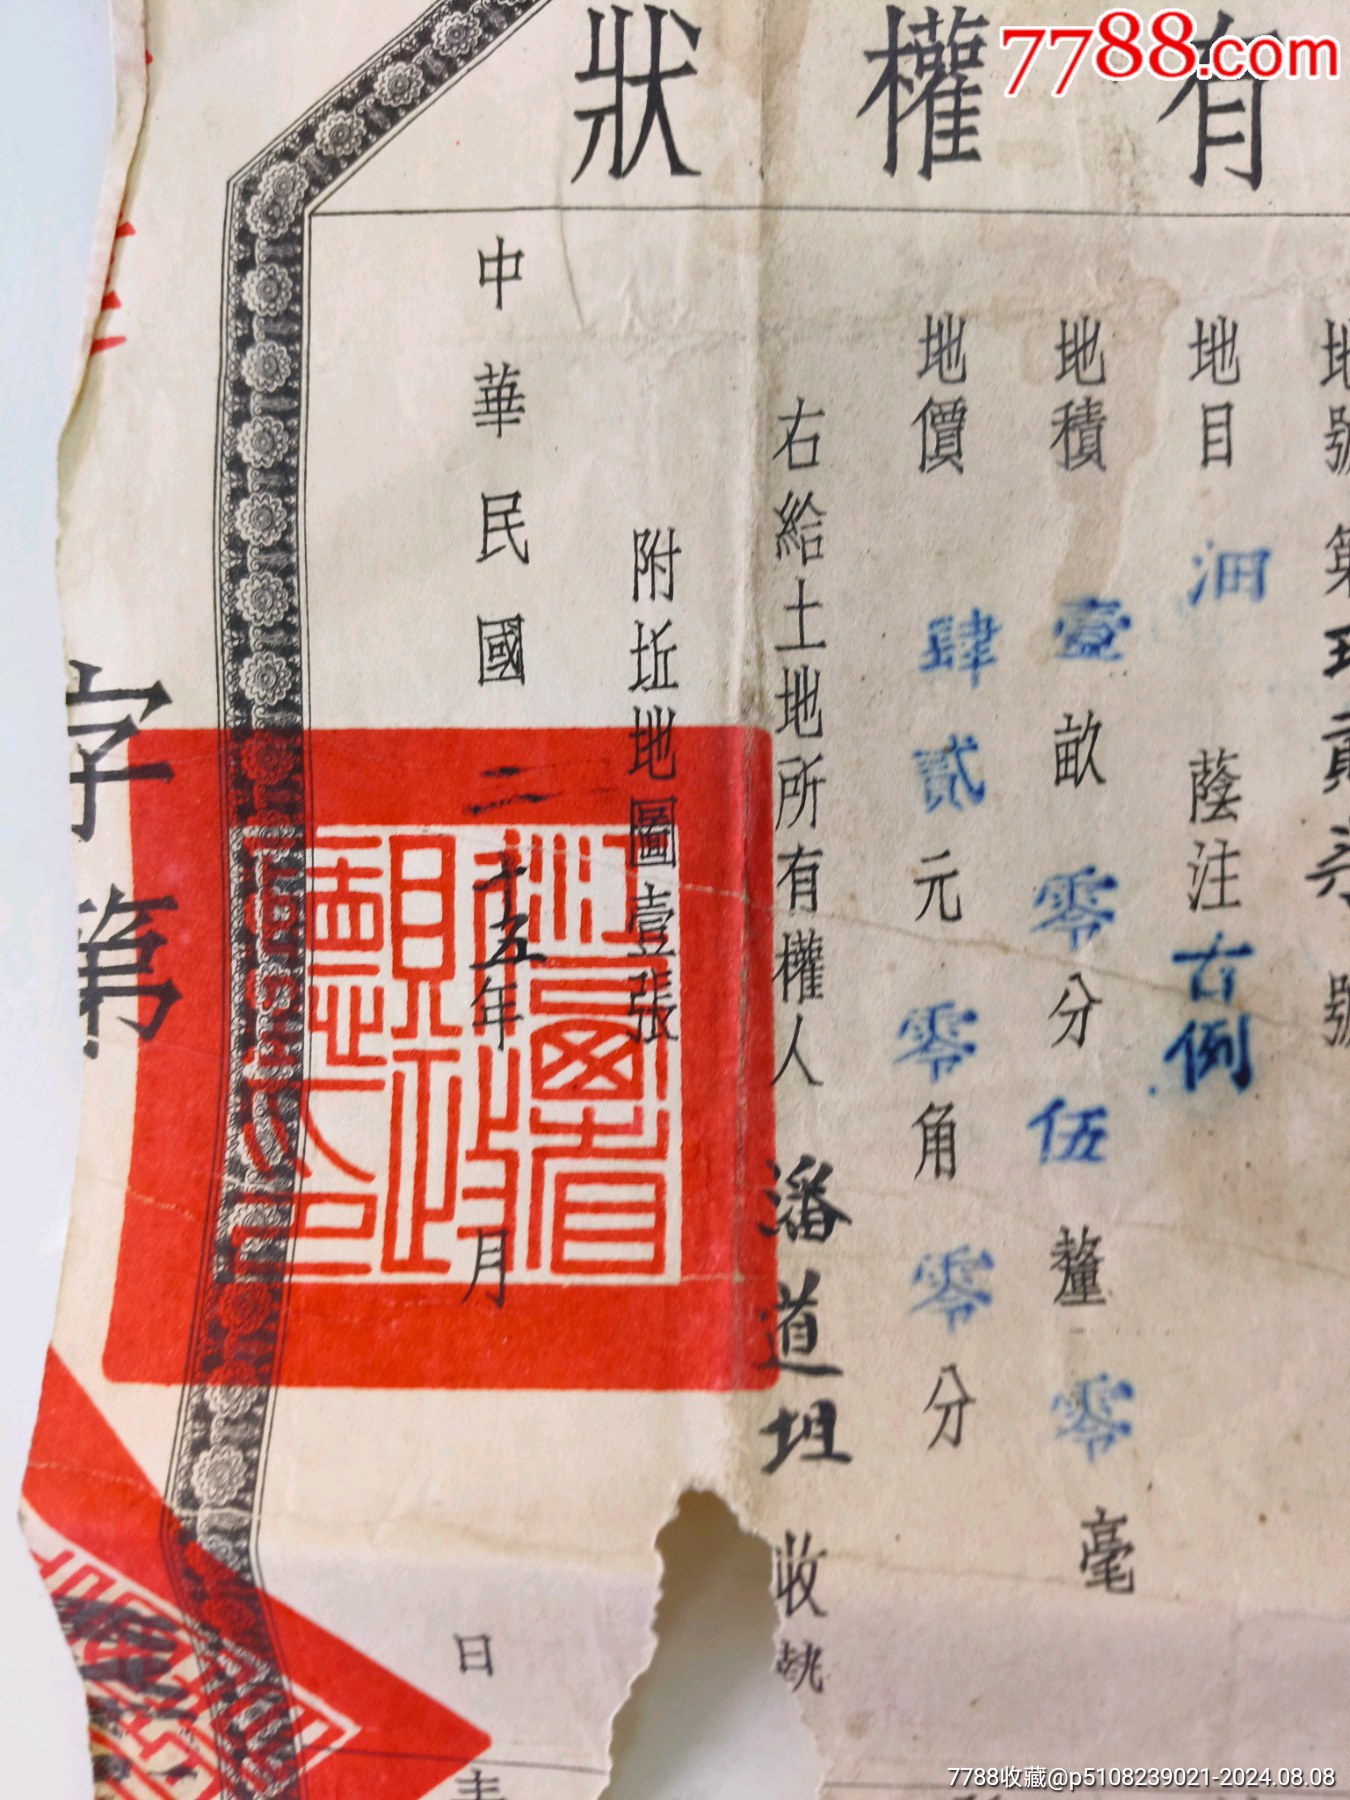 有權狀
7788.com
地號第 號
地目 沺 蔭注 古例
地積 壹畝零分伍釐零毫
地價 肆貳元零角零分
右給土地所有權人 潘道坦 收執
附坵地圖壹張
中華民國二十五年 月 日
字第
7788收藏@p5108239021-2024.08.08